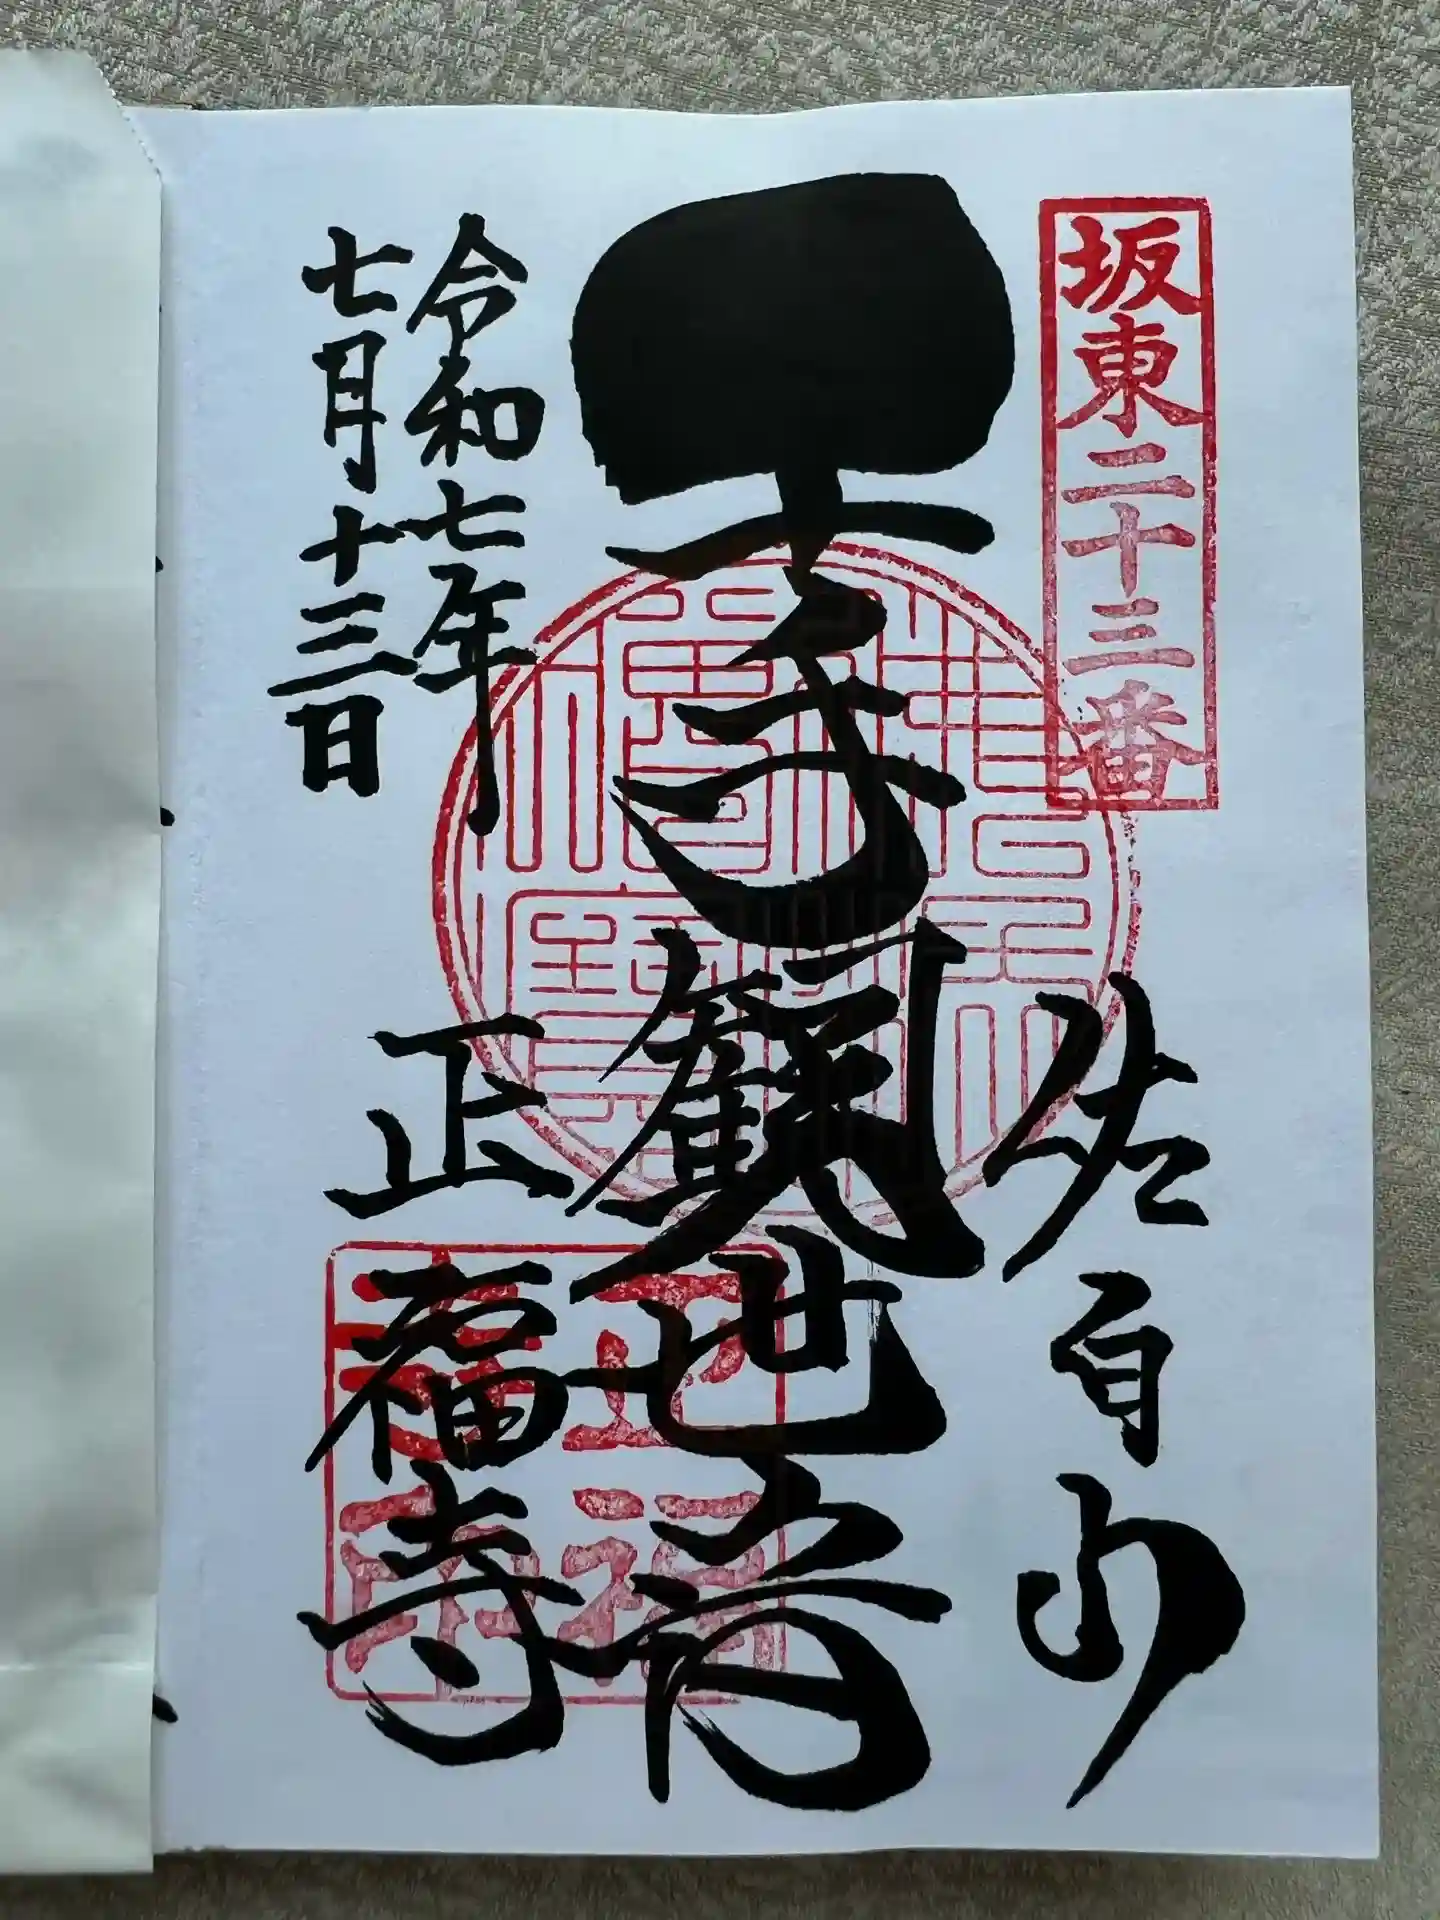 坂東二十三番
佐白山
千手觀世音
正福寺
令和七年
七月十三日
正福
寺印